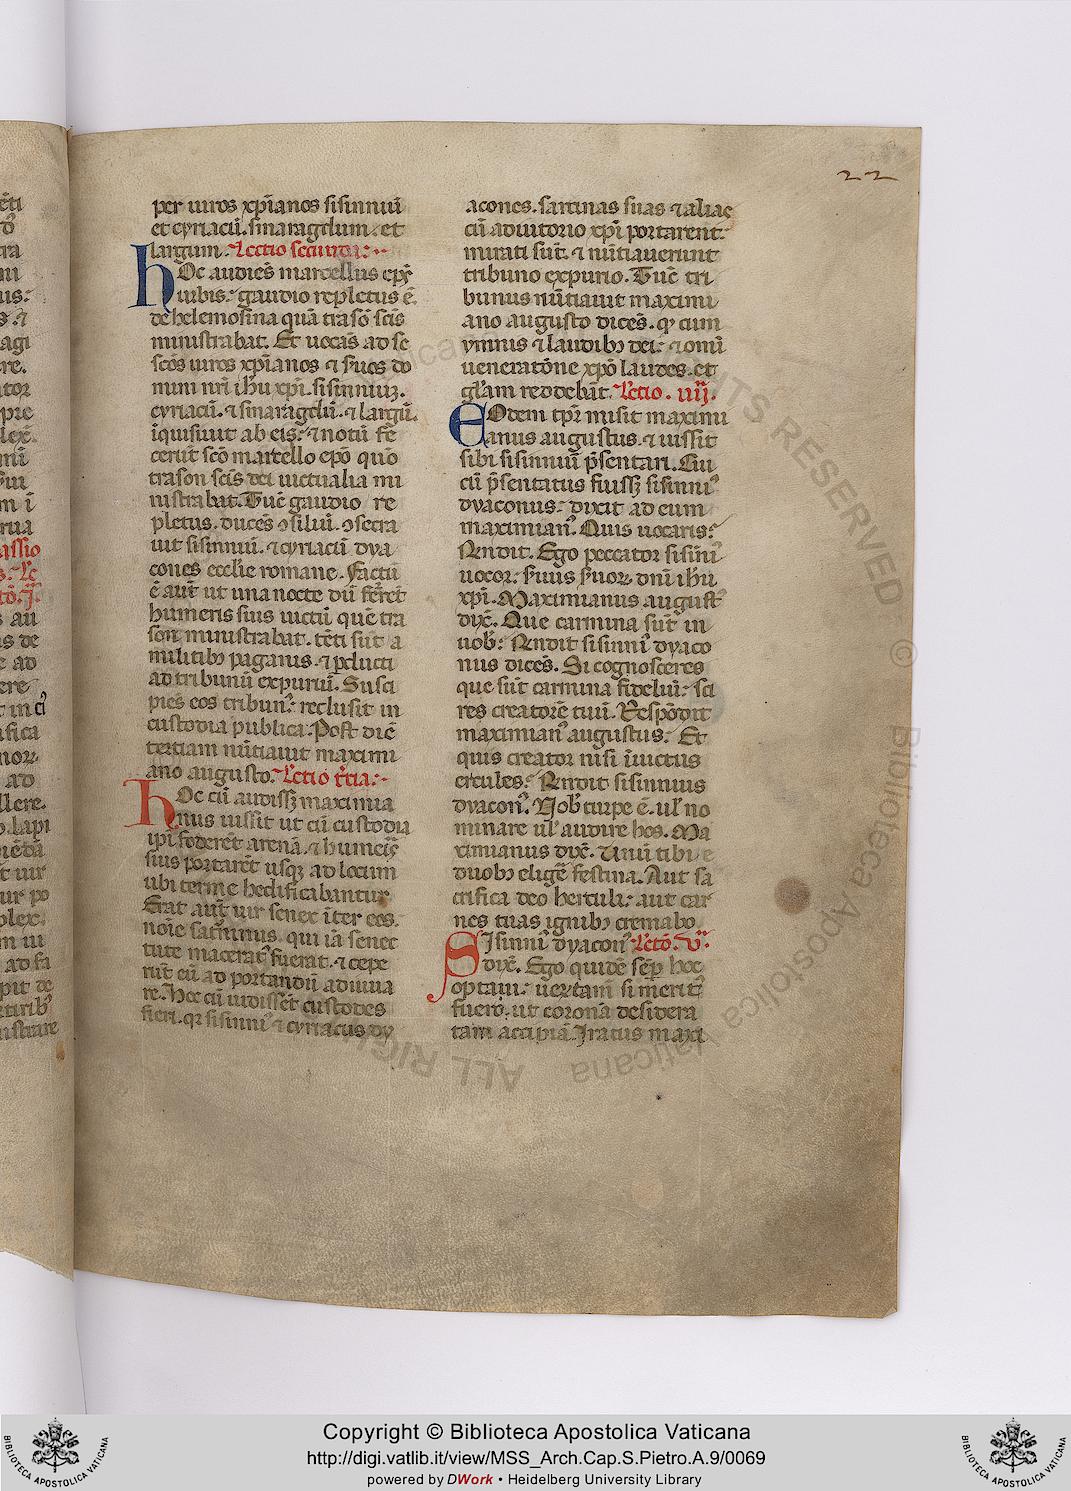 22
per uiros xp̄ianos sisinniū
et cyriacū. smaragdum. et
largum. Lectio secunda:
hOc audiēs marcellus ep̄s
urbis: gaudio repletus ē.
de helemosina quā trasō sc̄is
ministrabat. Et uocās ad se
sc̄os uiros xp̄ianos ⁊ s̄uos do
mini nr̄i ih̄u xp̄i. sisinniuꝫ.
cyriacū. ⁊ smaragdū. ⁊ largū.
īquisiuit ab eis: ⁊ notū fe
cerūt sc̄o martello ep̄o quō
trason sc̄is dei uictualia mi
nistrabat. Tūc gaudio re
pletus. ducēs ꝯsiliū. ꝯsecra
uit sisinniū. ⁊ cyriacū dya
cones eccl̄ie romane. Factū
ē aut̄ ut una nocte dū ferrēt
humeris suis uictū quē tra
son ministrabat. tēti sūt a
militibꝫ paganis. ⁊ ꝑducti
ad tribunū expuriū. Susci
piēs eos tribunꝰ: reclusit in
custodia publica. Post diē
tertiam nūtiauit maximi
ano augusto. Lectio t̄cia:
hOc cū audissꝫ maximia
nus iussit ut cū custodia
ip̄i foderēt arenā. ⁊ humeris
suis portarēt usqꝫ ad locum
ubi terme hedificabantur.
Erat aut̄ uir senex īter eos.
nōie saturninus. qui iā senec
tute maceratꝰ fuerat. ⁊ cepe
rūt cū ad portandū adiuua
re. Hoc cū uidissēt custodes
fieri. qꝛ sisinniꝰ ⁊ cyriacus dy
acones. sarcinas suas ⁊ alias
cū adiutorio xp̄i portarent:
mirati sūt. ⁊ nūtiauerunt
tribuno expurio. Tūc tri
bunus nūtiauit maximi
ano augusto dicēs. qꝫ cum
ymnis ⁊ laudibꝫ dei: ⁊ omī
ueneratōne xp̄o laudes. et
gl̄am reddebāt. Lectio. iiij.
EOdem tp̄r misit maximi
anus augustus. ⁊ iussit
sibi sisinniū p̄sentari. Cui
cū p̄sentatus fuissꝫ sisinniꝰ
dyaconus: dixit ad eum
maximianꝰ. Quis uocaris:
Rn̄dit. Ego peccator sisinniꝰ
uocor: s̄uus s̄uoꝝ dn̄i ih̄u
xp̄i. Maximianus augustꝰ
dix̄. Que carmina sūt in
uob̄: Rn̄dit sisinniꝰ dyaco
nus dicēs. Si cognosceres
que sūt carmina fideliū: sci
res creatorē tuū. Respōdit
maximianꝰ augustus: Et
quis creator nisi īuictus
ercules: Rn̄dit sisinnius
dyaconꝰ. Nob̄ turpe ē. ul̄ no
minare ul̄ audire hos. Ma
ximianus dix̄. Unū tibi e
duobꝫ elige festina. Aut sa
crifica deo herculi: aut car
nes tuas ignibꝫ cremabo.
Sisinniꝰ dyaconꝰ Lectō. v.
dix̄. Ego quidē sēꝑ hoc
optaui: uꝫ tam si merit
fuero. ut coronā desidera
tam accipiā. Iratus maxi
Copyright © Biblioteca Apostolica Vaticana
http://digi.vatlib.it/view/MSS_Arch.Cap.S.Pietro.A.9/0069
powered by DWork • Heidelberg University Library